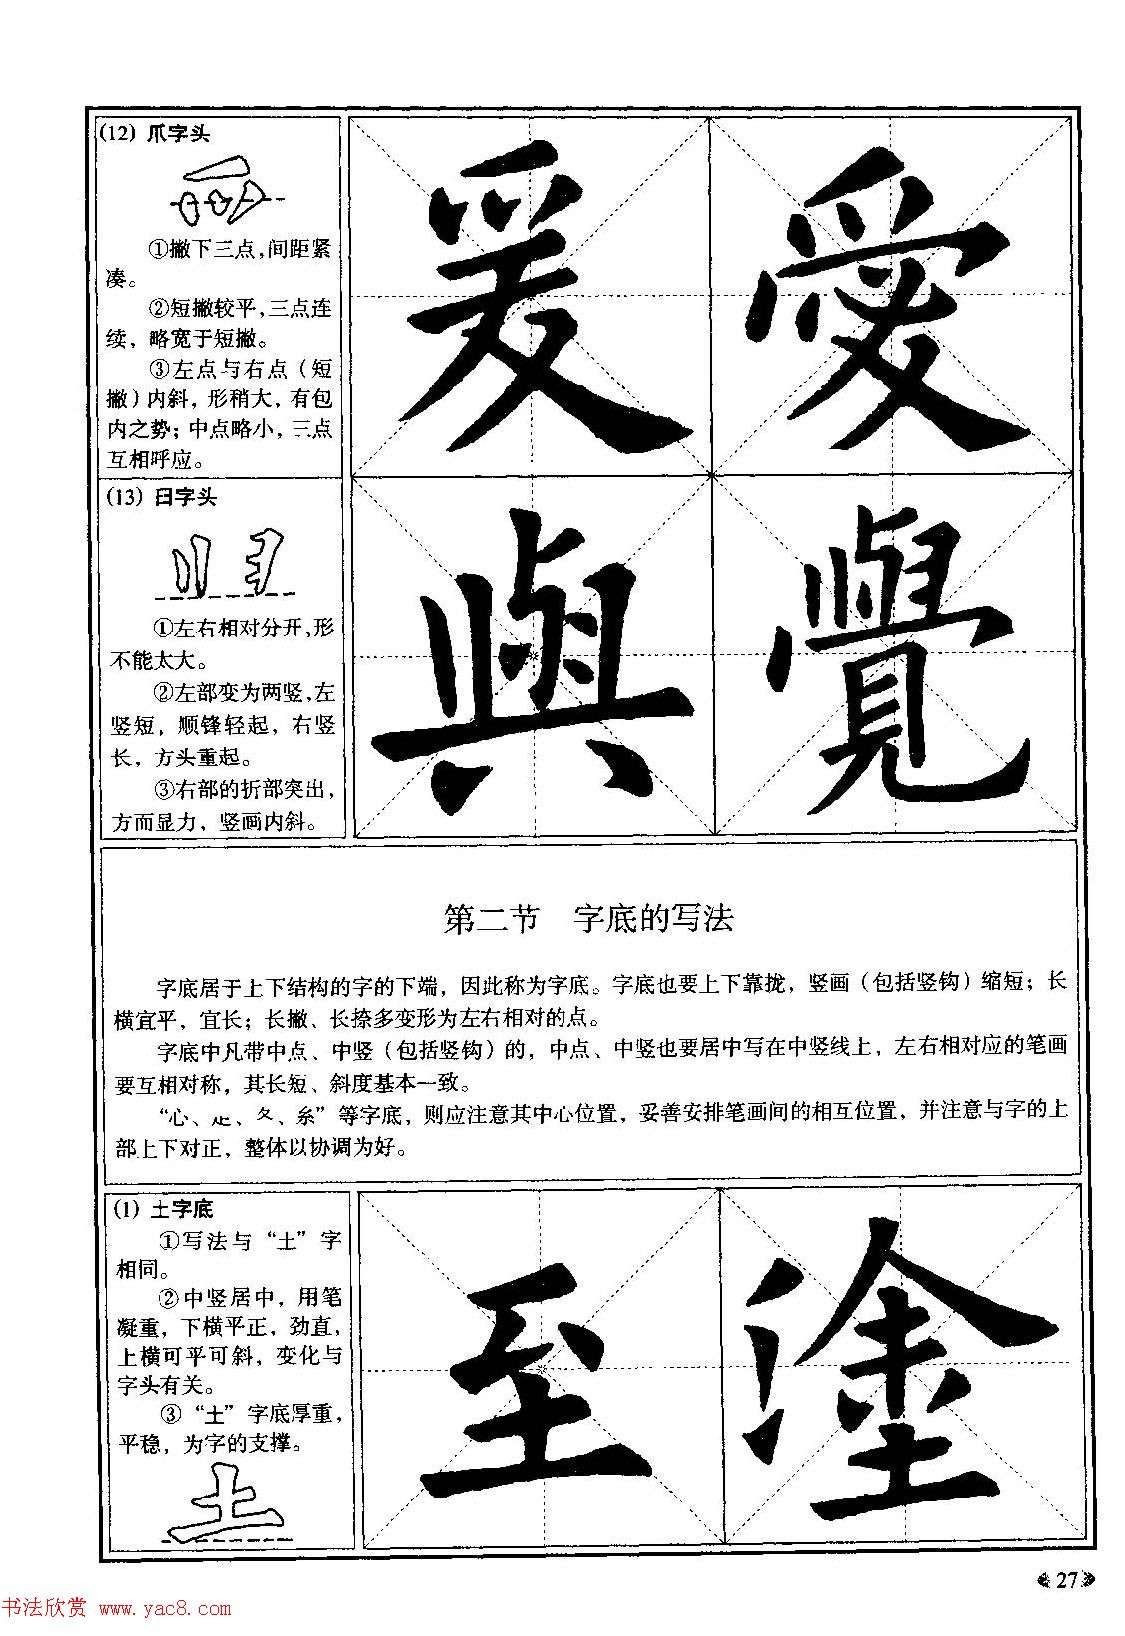 (12) 爪字头
①撇下三点,间距紧
凑。
②短撇较平,三点连
续，略宽于短撇。
③左点与右点（短
撇）内斜，形稍大，有包
内之势；中点略小，三点
互相呼应。
爰 愛
(13) 臼字头
①左右相对分开,形
不能太大。
②左部变为两竖,左
竖短，顺锋轻起，右竖
长，方头重起。
③右部的折部突出,
方而显力，竖画内斜。
與 覺
第二节 字底的写法
字底居于上下结构的字的下端，因此称为字底。字底也要上下靠拢，竖画（包括竖钩）缩短；长
横宜平，宜长；长撇、长捺多变形为左右相对的点。
字底中凡带中点、中竖（包括竖钩）的，中点、中竖也要居中写在中竖线上，左右相对应的笔画
要互相对称，其长短、斜度基本一致。
“心、辵、夂、糸”等字底，则应注意其中心位置，妥善安排笔画间的相互位置，并注意与字的上
部上下对正，整体以协调为好。
(1) 土字底
①写法与“土”字
相同。
②中竖居中，用笔
凝重，下横平正，劲直，
上横可平可斜，变化与
字头有关。
③“土”字底厚重，
平稳，为字的支撑。
土
至 塗
27
书法欣赏 www.yac8.com